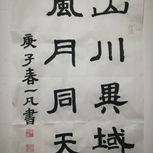 山川異域
風月同天
庚子春一凡書